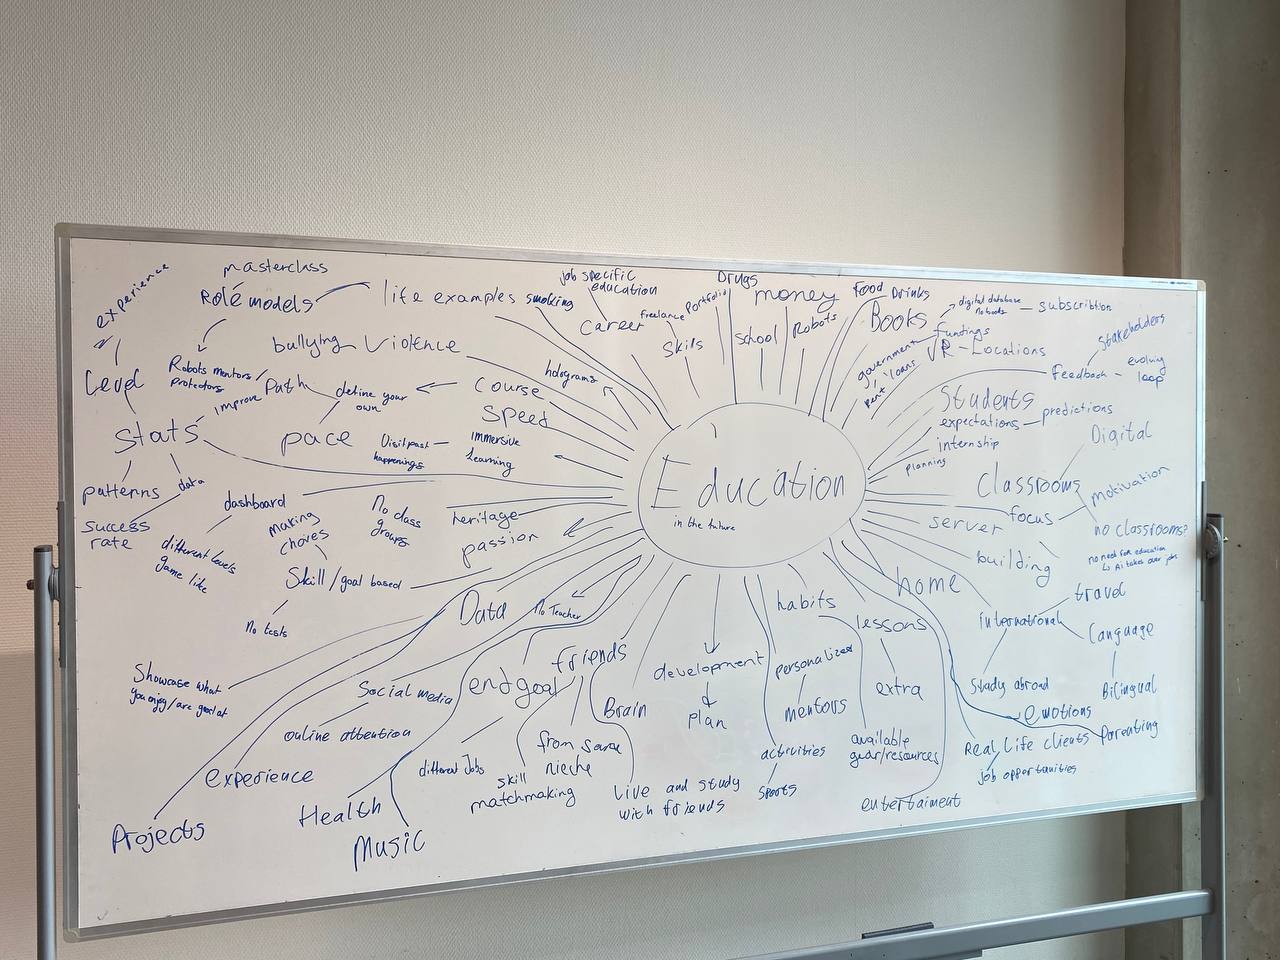 Education
in the future
experience
Level
Stats
patterns
data
success
rate
masterclass
Role models
Robots mentors/
protectors
life examples
smoking
bullying
Violence
improve
Path
define your
own
pace
course
Speed
holograms
immersive
Learning
happenings
dashboard
different levels
game like
No class
groups
heritage
passion
making
Skill/goal based
No tests
Data
No Teacher
Showcase what
you enjoy/are great at
Projects
experience
Social media
online attention
Health
Music
endgoal
different Jobs
friends
from same
skill
matchmaking
Brain
live and study
with friends
development
&
plan
habits
personalized
mentors
activities
sports
lessons
extra
available
gear/resources
home
entertaiment
emotions
Parenting
Real Life clients
job opportunities
international
travel
Language
Bilingual
Study abroad
building
server
Classrooms
Digital
focus
motivation
no classrooms?
no need for education
AI takes over jobs
Students
expectations
predictions
internship
planning
Feedback
Stakeholders
evolving
loop
VR-Locations
fundings
government
loans
rent
Books
digital database
no books
subscribtion
Food
Drinks
money
Robots
School
Drugs
Portfolio
freelance
Skils
Career
job specific
education